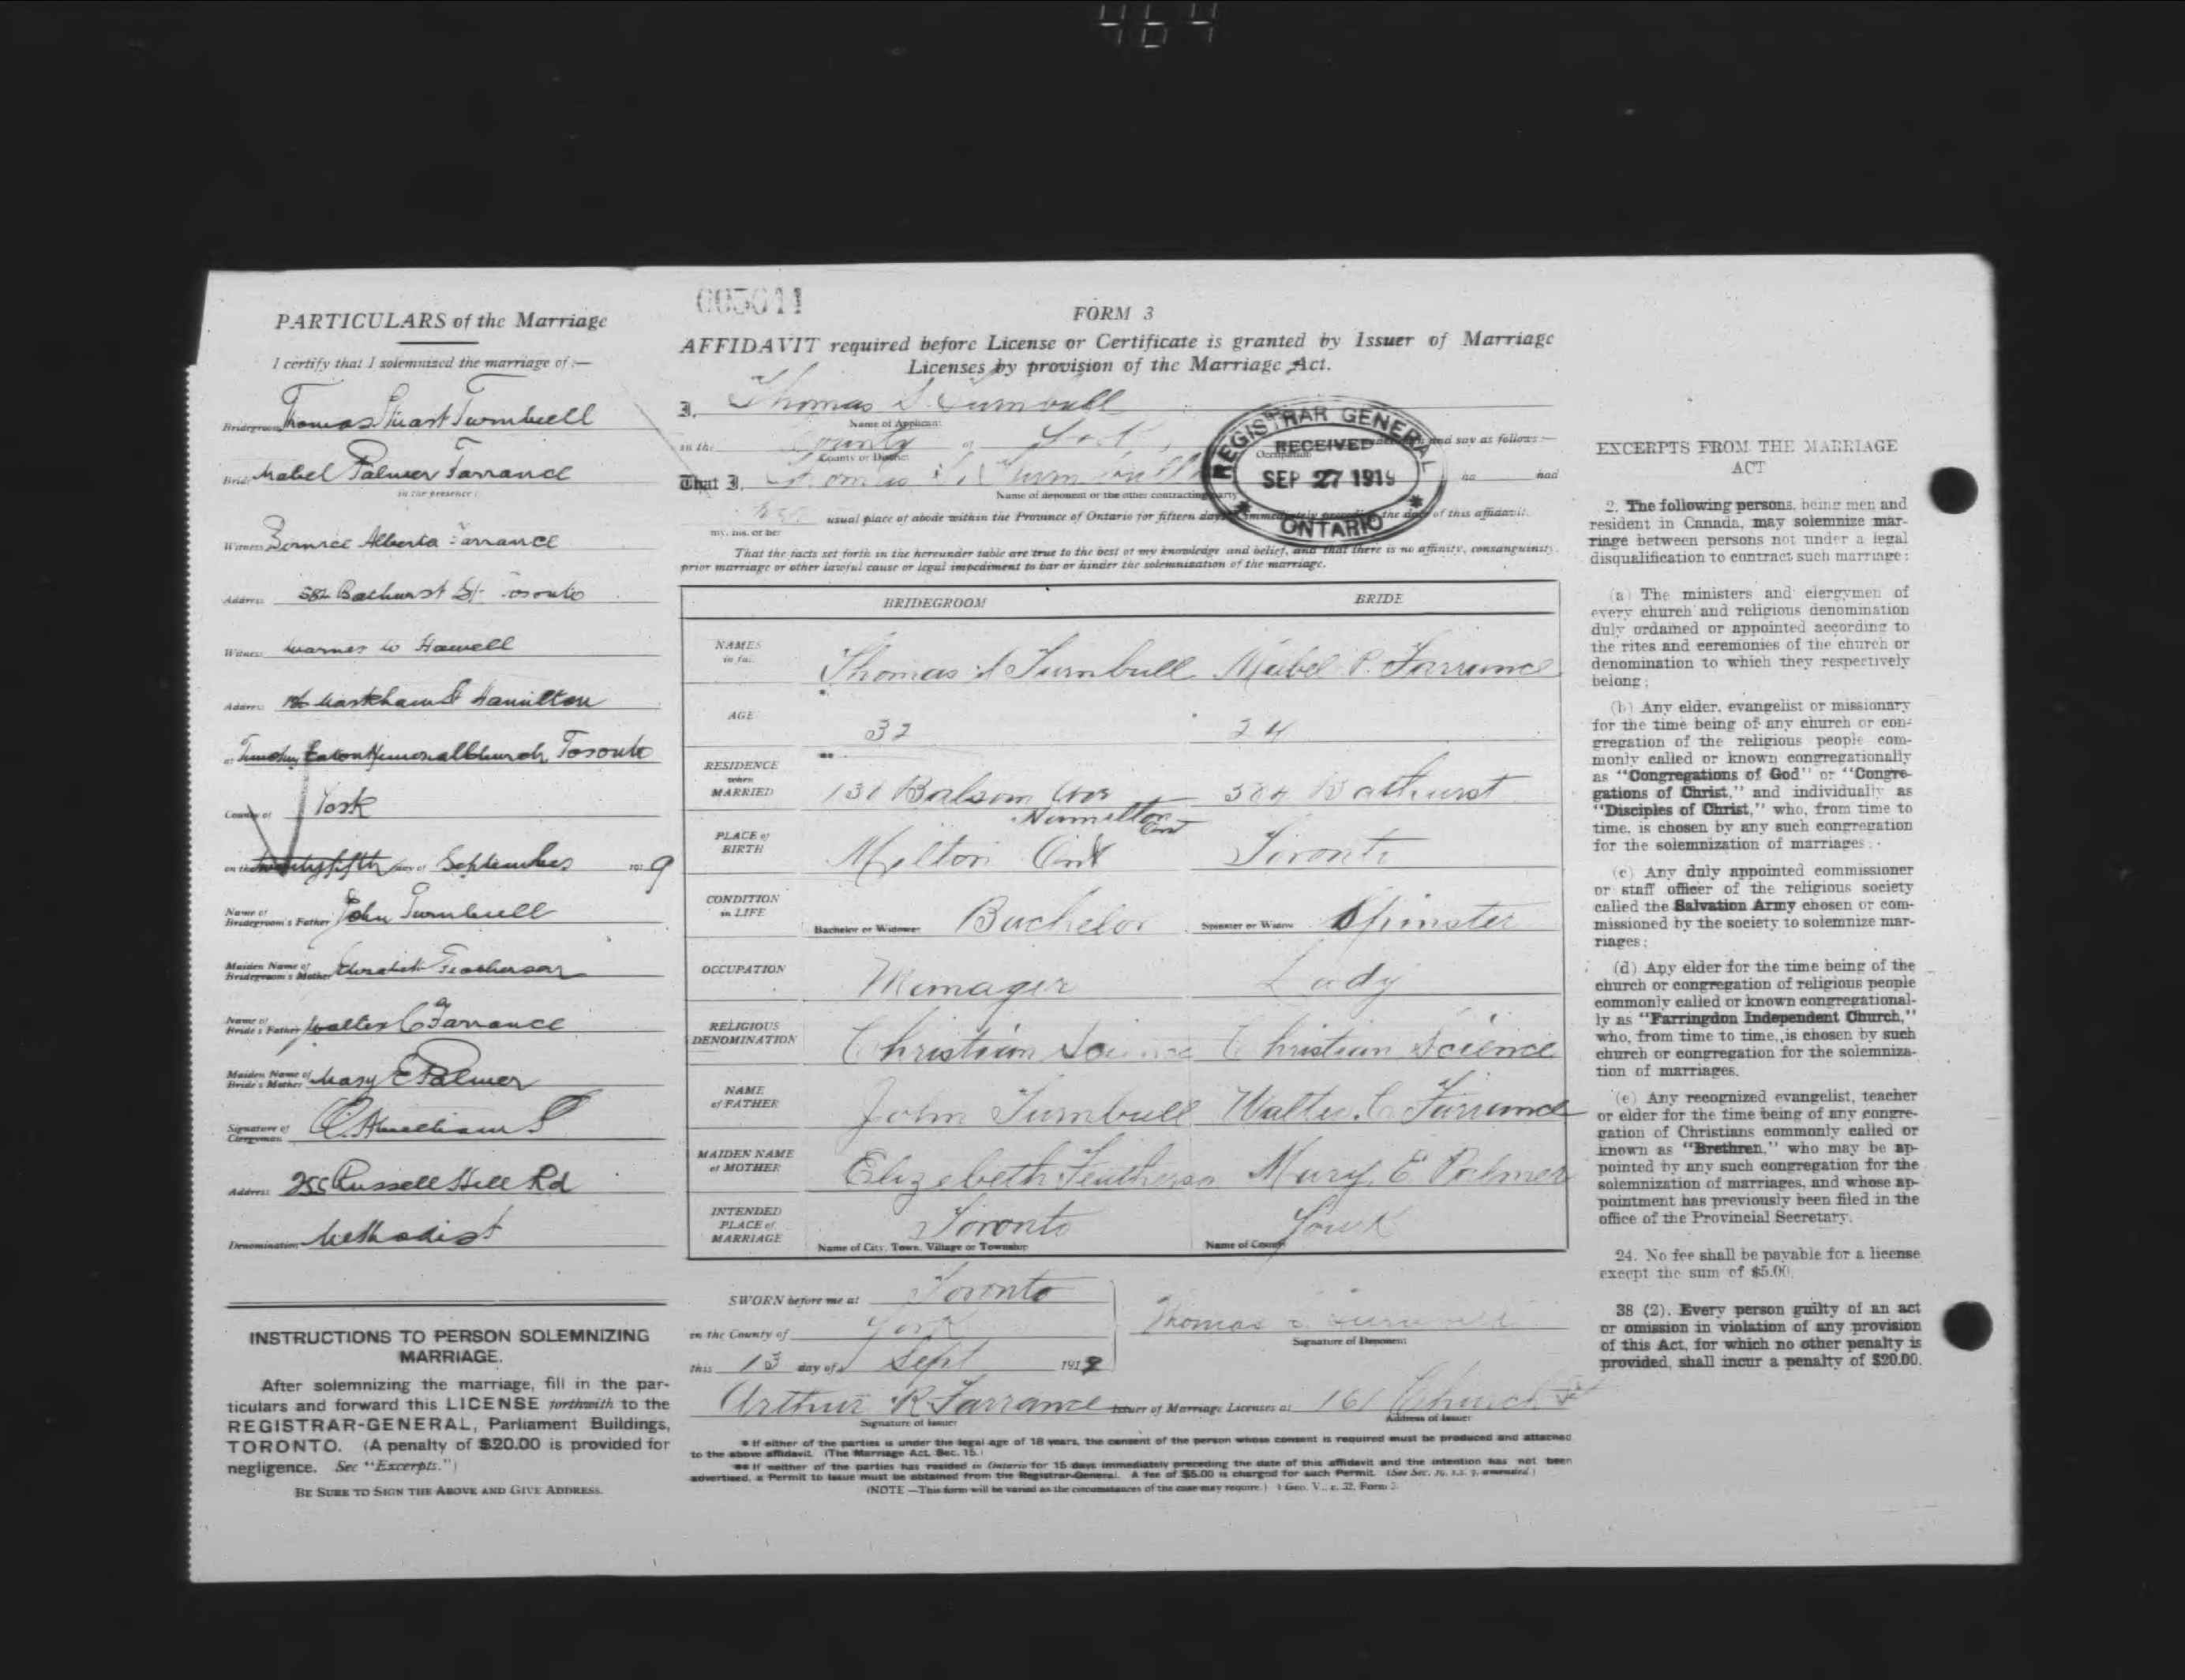 464
PARTICULARS of the Marriage
I certify that I solemnized the marriage of:—
Bridegroom Thomas Stuart Turnbull
Bride Mabel Palmer Farrance
in the presence:
Witness Bernice Alberta Farrance
Address 582 Bathurst St Toronto
Witness Warner W Howell
Address Markham St Hamilton
at Timothy Eaton Memorial Church Toronto
County of York
on the twenty fifth day of September 1919
Name of Bridegroom's Father John Turnbull
Maiden Name of Bridegroom's Mother Elizabeth Featherson
Name of Bride's Father Walter C Farrance
Maiden Name of Bride's Mother Mary E Palmer
Signature of Clergyman
Address 255 Russell Hill Rd
Denomination Methodist
INSTRUCTIONS TO PERSON SOLEMNIZING
MARRIAGE.
After solemnizing the marriage, fill in the par-
ticulars and forward this LICENSE forthwith to the
REGISTRAR-GENERAL, Parliament Buildings,
TORONTO. (A penalty of $20.00 is provided for
negligence. See "Excerpts.")
BE SURE TO SIGN THE ABOVE AND GIVE ADDRESS.
005011
FORM 3
AFFIDAVIT required before License or Certificate is granted by Issuer of Marriage
Licenses by provision of the Marriage Act.
I, Thomas S. Turnbull
Name of Applicant
in the County of York, and say as follows:—
County or District Occupation
That I, Thomas S. Turnbull had
Name of deponent or the other contracting party
usual place of abode within the Province of Ontario for fifteen days immediately preceding the date of this affidavit.
my, his, or her
REGISTRAR GENERAL
RECEIVED
SEP 27 1919
ONTARIO
That the facts set forth in the hereunder table are true to the best of my knowledge and belief, and that there is no affinity, consanguinity,
prior marriage or other lawful cause or legal impediment to bar or hinder the solemnization of the marriage.
BRIDEGROOM BRIDE
NAMES in full Thomas S Turnbull Mabel P. Farrance
AGE 32 24
RESIDENCE when MARRIED 131 Balsom Ave Hamilton Ont 584 Bathurst
PLACE of BIRTH Milton Ont Toronto
CONDITION in LIFE Bachelor or Widower Bachelor Spinster or Widow Spinster
OCCUPATION Manager Lady
RELIGIOUS DENOMINATION Christian Science Christian Science
NAME of FATHER John Turnbull Walter C Farrance
MAIDEN NAME of MOTHER Elizabeth Featherson Mary E Palmer
INTENDED PLACE of MARRIAGE Toronto York
Name of City, Town, Village or Township Name of County
SWORN before me at Toronto
in the County of York
this 13 day of Sept 1919
Thomas S. Turnbull
Signature of Deponent
Arthur R Farrance Issuer of Marriage Licenses at 161 Church St
Signature of Issuer Address of Issuer
* If either of the parties is under the legal age of 18 years, the consent of the person whose consent is required must be produced and attached
to the above affidavit. (The Marriage Act, Sec. 15.)
** If neither of the parties has resided in Ontario for 15 days immediately preceding the date of this affidavit and the intention has not been
advertised, a Permit to issue must be obtained from the Registrar-General. A fee of $5.00 is charged for such Permit.
(NOTE—This form will be varied as the circumstances of the case may require.)
EXCERPTS FROM THE MARRIAGE
ACT
2. The following persons, being men and
resident in Canada, may solemnize mar-
riage between persons not under a legal
disqualification to contract such marriage:
(a) The ministers and clergymen of
every church and religious denomination
duly ordained or appointed according to
the rites and ceremonies of the church or
denomination to which they respectively
belong;
(b) Any elder, evangelist or missionary
for the time being of any church or con-
gregation of the religious people com-
monly called or known congregationally
as "Congregations of God" or "Congre-
gations of Christ," and individually as
"Disciples of Christ," who, from time to
time, is chosen by any such congregation
for the solemnization of marriages;
(c) Any duly appointed commissioner
or staff officer of the religious society
called the Salvation Army chosen or com-
missioned by the society to solemnize mar-
riages;
(d) Any elder for the time being of the
church or congregation of religious people
commonly called or known congregational-
ly as "Farringdon Independent Church,"
who, from time to time, is chosen by such
church or congregation for the solemniza-
tion of marriages.
(e) Any recognized evangelist, teacher
or elder for the time being of any congre-
gation of Christians commonly called or
known as "Brethren," who may be ap-
pointed by any such congregation for the
solemnization of marriages, and whose ap-
pointment has previously been filed in the
office of the Provincial Secretary.
24. No fee shall be payable for a license
except the sum of $5.00.
38 (2). Every person guilty of an act
or omission in violation of any provision
of this Act, for which no other penalty is
provided, shall incur a penalty of $20.00.